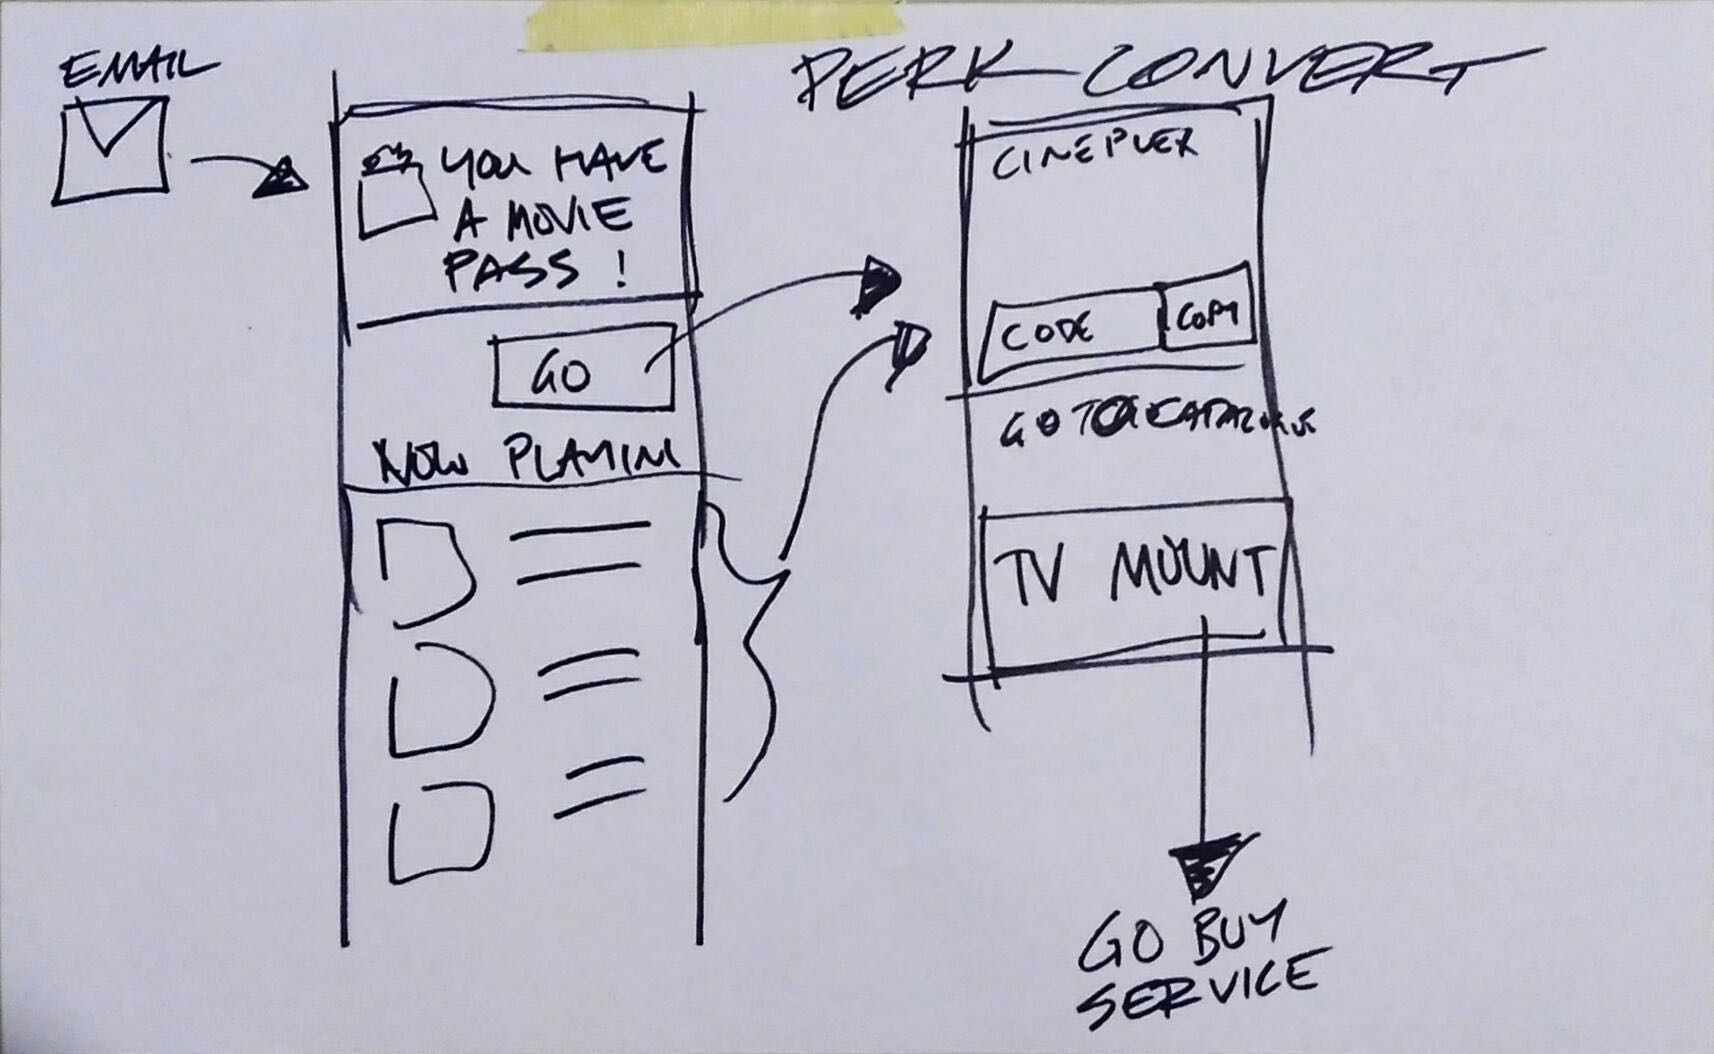 EMAIL
PERK CONVERT
YOU HAVE
A MOVIE
PASS !
GO
NOW PLAYIN
CINEPLEX
CODE
COPY
GO TO
TV MOUNT
GO BUY
SERVICE